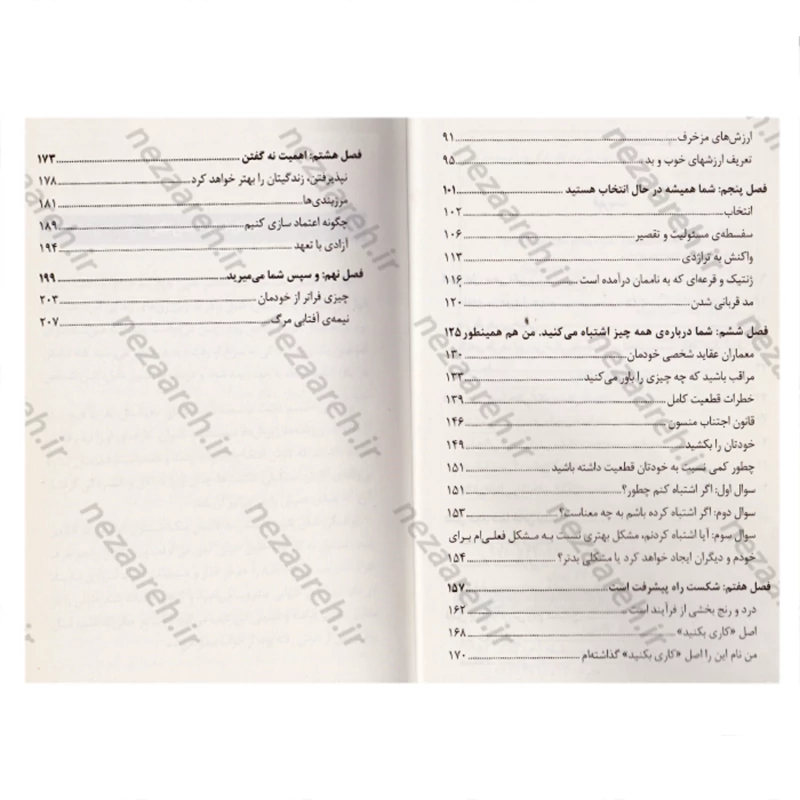 ارزش‌های مزخرف ..... ۹۱
تعریف ارزشهای خوب و بد ..... ۹۵
فصل پنجم: شما همیشه در حال انتخاب هستید ..... ۱۰۱
انتخاب ..... ۱۰۲
سفسطه‌ی مسئولیت و تقصیر ..... ۱۰۶
واکنش به تراژدی ..... ۱۱۳
ژنتیک و قرعه‌ای که به ناممان درآمده است ..... ۱۱۶
مد قربانی شدن ..... ۱۲۰
فصل ششم: شما درباره‌ی همه چیز اشتباه می‌کنید. من هم همینطور ۱۲۵
معماران عقاید شخصی خودمان ..... ۱۳۰
مراقب باشید که چه چیزی را باور می‌کنید ..... ۱۳۳
خطرات قطعیت کامل ..... ۱۳۹
قانون اجتناب منسون ..... ۱۴۶
خودتان را بکشید ..... ۱۴۹
چطور کمی نسبت به خودتان قطعیت داشته باشید ..... ۱۵۱
سوال اول: اگر اشتباه کنم چطور؟ ..... ۱۵۱
سوال دوم: اگر اشتباه کرده باشم به چه معناست؟ ..... ۱۵۳
سوال سوم: آیا اشتباه کردنم، مشکل بهتری نسبت به مشکل فعلی‌ام برای
خودم و دیگران ایجاد خواهد کرد یا مشکلی بدتر؟ ..... ۱۵۴
فصل هفتم: شکست راه پیشرفت است ..... ۱۵۷
درد و رنج بخشی از فرآیند است ..... ۱۶۲
اصل «کاری بکنید» ..... ۱۶۸
من نام این را اصل «کاری بکنید» گذاشته‌ام ..... ۱۷۰
فصل هشتم: اهمیت نه گفتن ..... ۱۷۳
نپذیرفتن، زندگیتان را بهتر خواهد کرد ..... ۱۷۸
مرزبندی‌ها ..... ۱۸۱
چگونه اعتماد سازی کنیم ..... ۱۸۹
آزادی با تعهد ..... ۱۹۴
فصل نهم: و سپس شما می‌میرید ..... ۱۹۹
چیزی فراتر از خودمان ..... ۲۰۳
نیمه‌ی آفتابی مرگ ..... ۲۰۷
nezaareh.ir